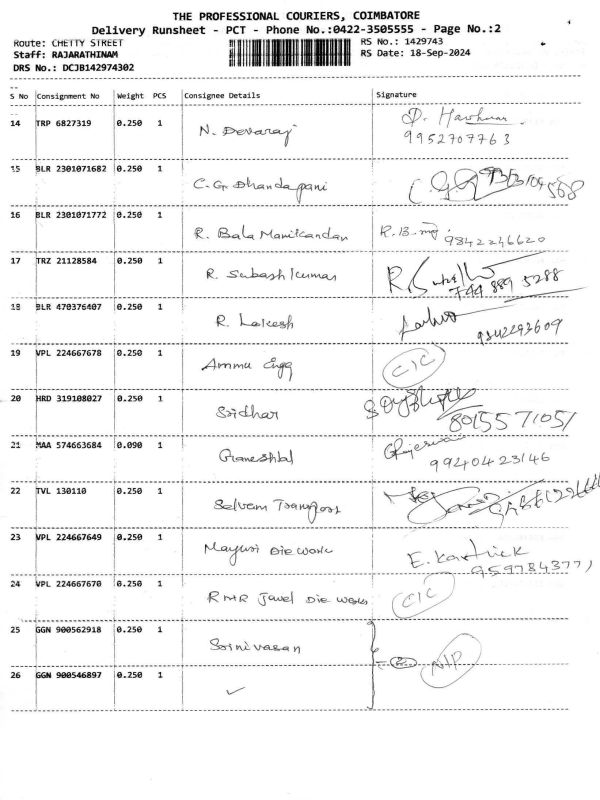 THE PROFESSIONAL COURIERS, COIMBATORE
Delivery Runsheet - PCT - Phone No.:0422-3505555 - Page No.:2
Route: CHETTY STREET RS No.: 1429743
Staff: RAJARATHINAM RS Date: 18-Sep-2024
DRS No.: DCJB142974302
S No Consignment No Weight PCS Consignee Details Signature
14 TRP 6827319 0.250 1 N. Devaraj
9952707763
15 BLR 2301071682 0.250 1 C. G. Dhandapani
16 BLR 2301071772 0.250 1 R. Bala Manikandan R.B. 9842246620
17 TRZ 21128584 0.250 1 R. Subash kumar R.
744 889 5288
18 BLR 470376407 0.250 1 R. Lokesh
9842293609
19 VPL 224667678 0.250 1 Ammu Engg CIC
20 HRD 319108027 0.250 1 Sridhar
8015571051
21 MAA 574663684 0.090 1 Ganeshlal
9940423146
22 TVL 130110 0.250 1 Selvam Transport
23 VPL 224667649 0.250 1 Mayuri Die work E. Karthick
9597843771
24 VPL 224667670 0.250 1 RMR Jewel Die works CIC
25 GGN 900562918 0.250 1 Srinivasan
N/P
26 GGN 900546897 0.250 1 ✓